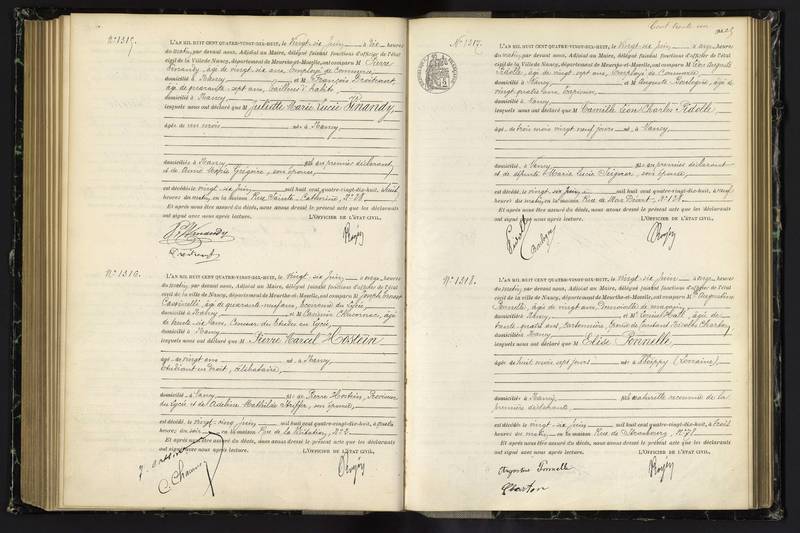 Cent trente un
N° 1315.
L'AN MIL HUIT CENT QUATRE-VINGT-DIX-HUIT, le Vingt-six Juin à dix heures
du matin, par devant nous, Adjoint au Maire, délégué faisant fonctions d'officier de l'état
civil de la Ville de Nancy, département de Meurthe-et-Moselle, ont comparu M Pierre
âgé de vingt-six ans, Employé de Commerce,
domicilié à Nancy et M François
âgé de quarante-sept ans, Tailleur d'habits,
domicilié à Nancy
lesquels nous ont déclaré que M Juliette Marie Lucie
âgée de un mois née à Nancy
domiciliée à Nancy fille du premier déclarant
et de Anne Marie Grégoire, son épouse
est décédée le vingt-six juin mil huit cent quatre-vingt-dix-huit, à huit
heures du matin, en la maison Rue Sainte-Catherine, N° 28
Et après nous être assuré du décès, nous avons dressé le présent acte que les déclarants
ont signé avec nous après lecture. L'OFFICIER DE L'ÉTAT CIVIL,
N° 1316.
L'AN MIL HUIT CENT QUATRE-VINGT-DIX-HUIT, le Vingt-six Juin à onze heures
du matin, par devant nous, Adjoint au Maire, délégué faisant fonctions d'officier de l'état
civil de la ville de Nancy, département de Meurthe-et-Moselle, ont comparu M Joseph
âgé de quarante-neuf ans, Econome du Lycée,
domicilié à Nancy et M Casimir âgé
de trente-six ans, Censeur des Etudes au Lycée,
domicilié à Nancy
lesquels nous ont déclaré que M Pierre Marcel Hostein,
âgé de vingt ans né à Nancy
Etudiant en Droit, célibataire,
domicilié à Nancy fils de Pierre Hostein, Proviseur
du Lycée et de Adeline Mathilde son épouse,
est décédé le vingt-cinq juin mil huit cent quatre-vingt-dix-huit, à quatre
heures du soir en la maison Rue de la Visitation, N° 2
Et après nous être assuré du décès, nous avons dressé le présent acte que les déclarants
ont signé avec nous après lecture. L'OFFICIER DE L'ÉTAT CIVIL,
N° 1317.
L'AN MIL HUIT CENT QUATRE-VINGT-DIX-HUIT, le Vingt-six Juin à onze heures
du matin, par devant nous, Adjoint au Maire, délégué faisant fonctions d'officier de l'état
civil de la Ville de Nancy, département de Meurthe-et-Moselle, ont comparu M Léon Auguste
âgé de vingt-sept ans, Employé de Commerce
domicilié à Nancy et M Auguste âgé de
vingt-quatre ans,
domicilié à Nancy
lesquels nous ont déclaré que M Camille Léon Charles
âgé de trois mois vingt neuf jours né à Nancy
domicilié à Nancy fils du premier déclarant
et de défunte Marie Lucie son épouse,
est décédé le vingt-six juin mil huit cent quatre-vingt-dix-huit, à neuf
heures du matin, en la maison Rue de N° 128
Et après nous être assuré du décès, nous avons dressé le présent acte que les déclarants
ont signé avec nous après lecture. L'OFFICIER DE L'ÉTAT CIVIL,
N° 1318.
L'AN MIL HUIT CENT QUATRE-VINGT-DIX-HUIT, le Vingt-six Juin à onze heures
du matin, par devant nous, Adjoint au Maire, délégué faisant fonctions d'officier de l'état
civil de la ville de Nancy, département de Meurthe-et-Moselle, ont comparu M Augustine
âgée de vingt ans, Demoiselle de magasin,
domiciliée à Nancy et M Louise âgée de
trente-quatre ans, Cartonnière, Nicolas Charton,
domiciliée à Nancy
lesquels nous ont déclaré que M Elise
âgée de huit mois sept jours née à (Lorraine),
domiciliée à Nancy fille naturelle reconnue de la
première déclarante,
est décédée le vingt-six juin mil huit cent quatre-vingt-dix-huit, à trois
heures du matin en la maison Rue de Strasbourg, N° 78
Et après nous être assuré du décès, nous avons dressé le présent acte que les déclarants
ont signé avec nous après lecture. L'OFFICIER DE L'ÉTAT CIVIL,
Augustine
Charton